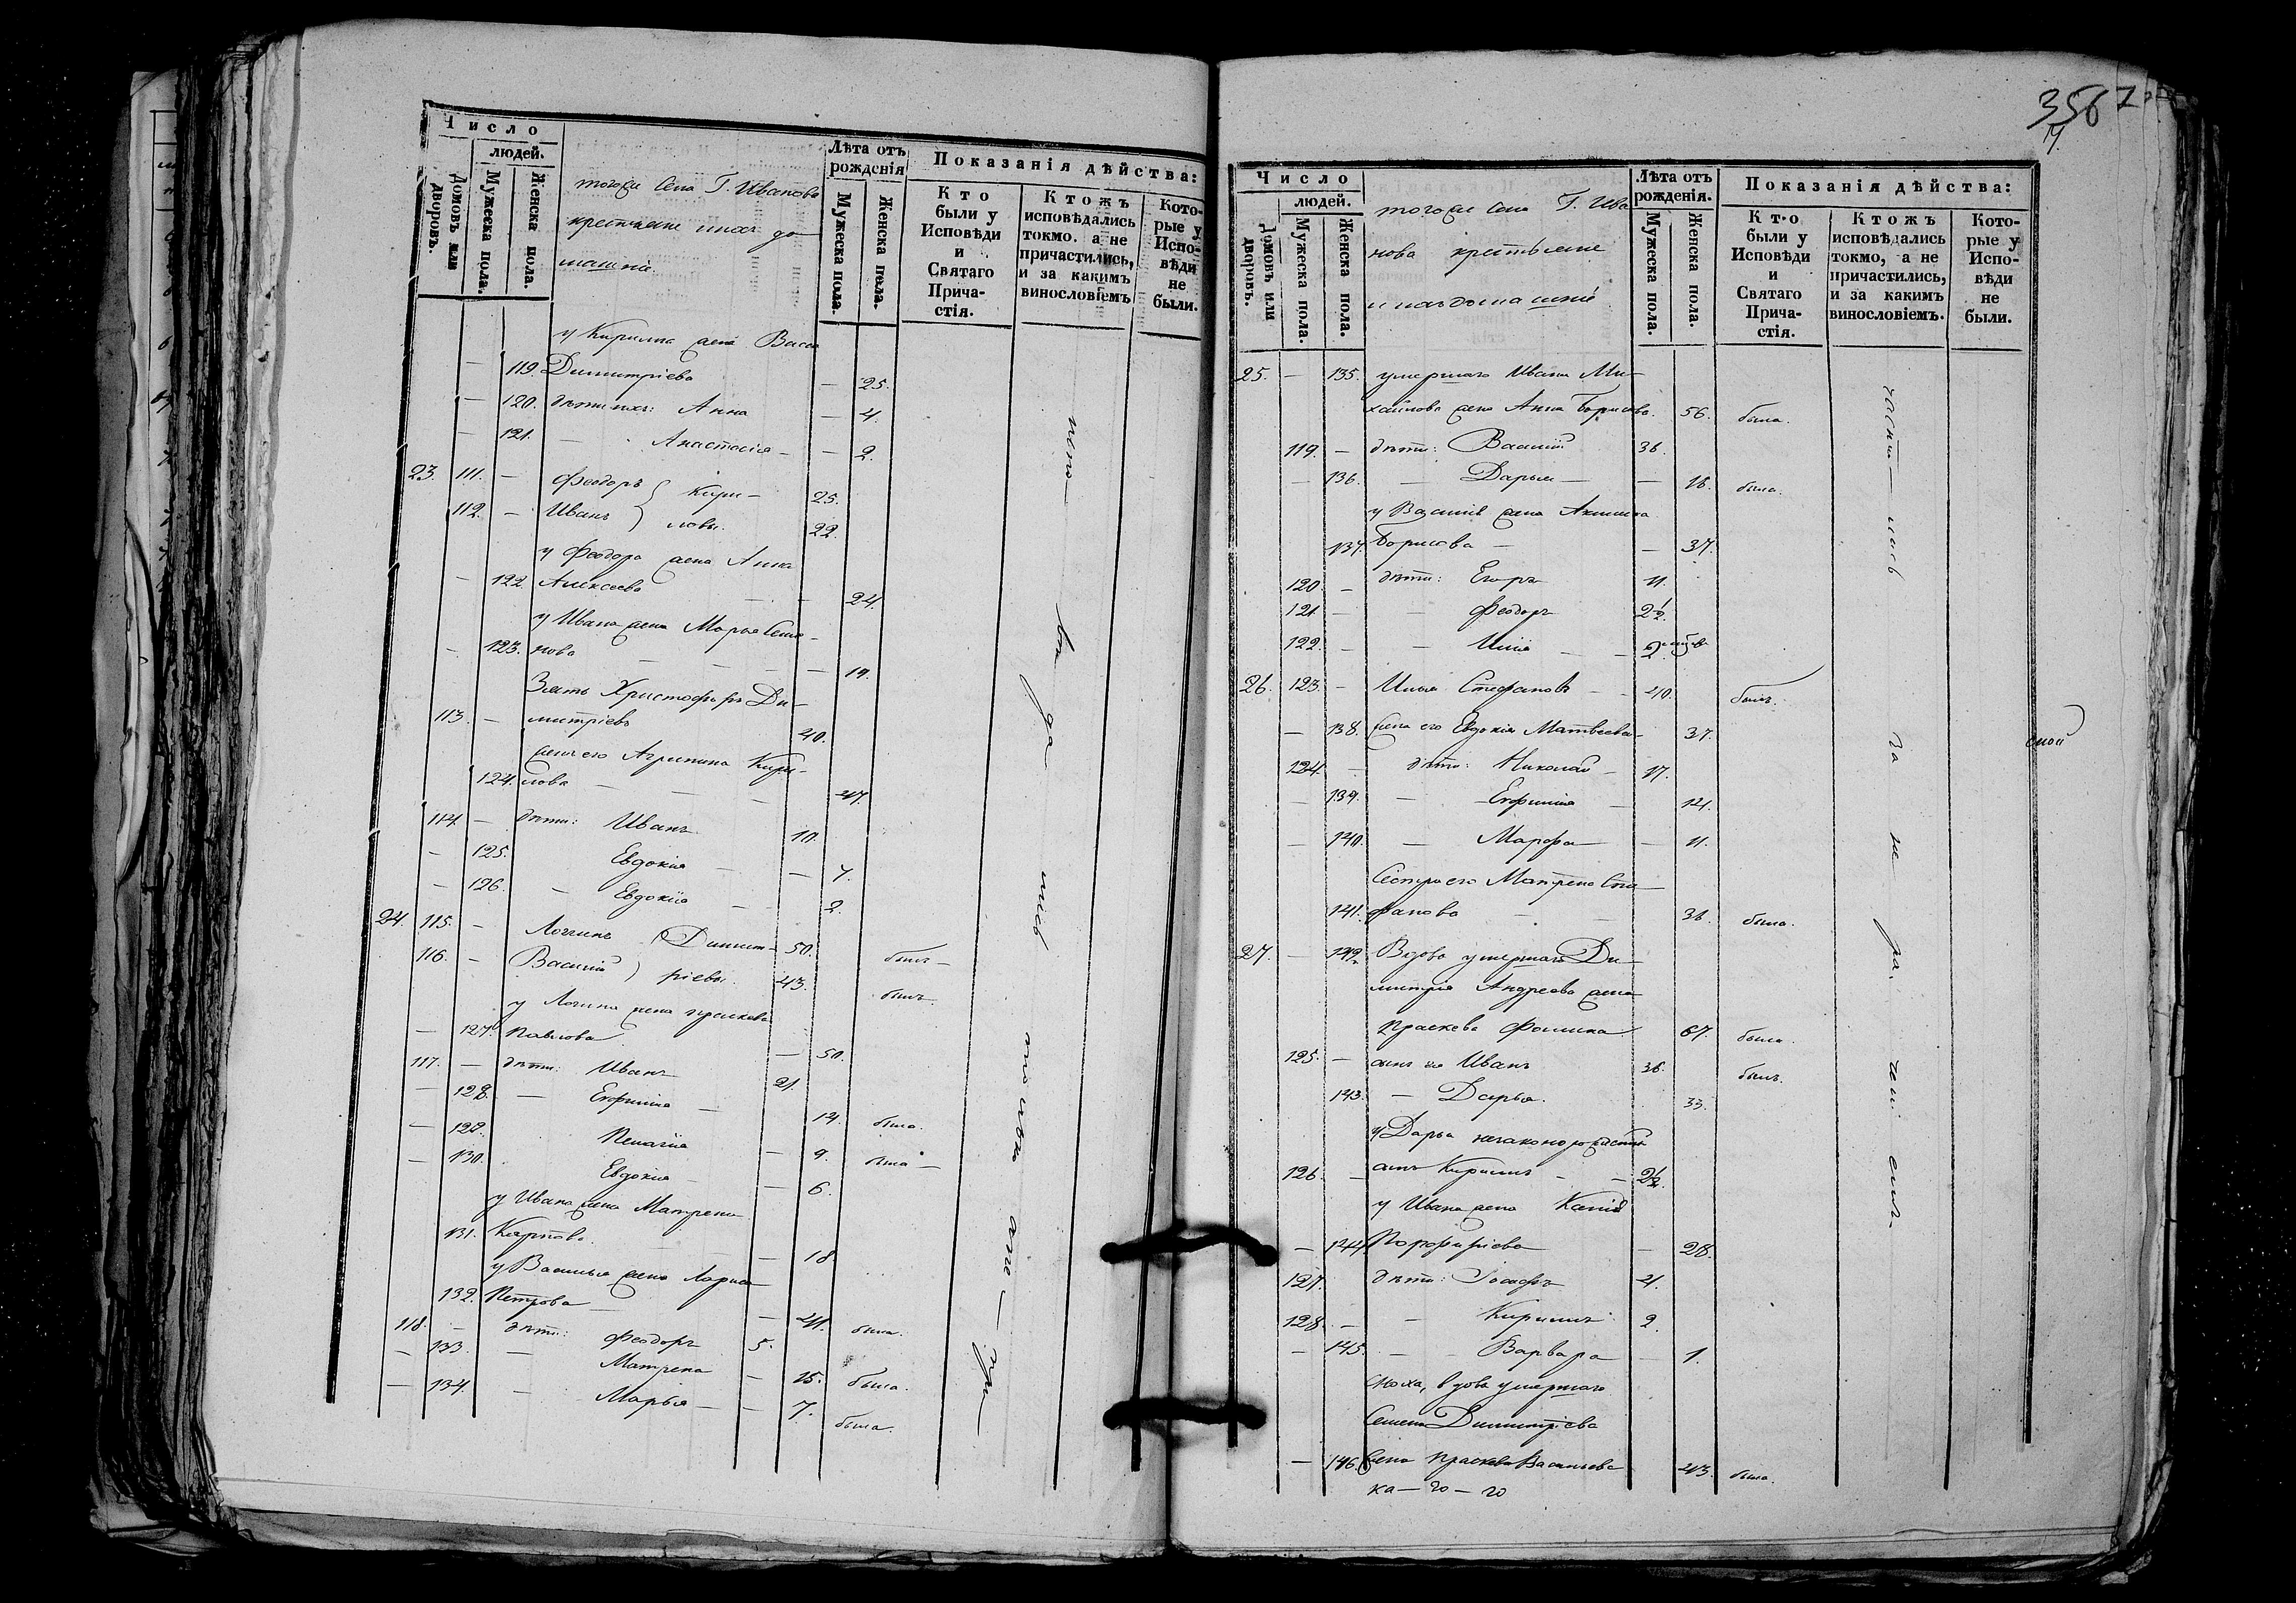 Число
людей.
Домовъ или дворовъ.
Мужеска пола.
Женска пола.
Лѣта отъ рожденія
Мужеска пола.
Женска пола.
Показанія дѣйства:
Кто были у Исповѣди и Святаго Прича- стія.
Ктожъ исповѣдались токмо, а не причастились, и за какимъ винословіемъ
Кото- рые у Испо- вѣди не были.
тогоже села Г. Иванова
крестьяне и ихъ до
машніе
у Кирилла жена Васса
119. Димитріева — 25.
— 120. дѣти ихъ: Анна — 4.
— 121. — Анастасія — — 2.
23. 111. — Феодоръ } Кири — 25.
112. — Иванъ } ловы. 22.
у Феодора жена Анна
— 122. Алексеева — — 24.
у Ивана жена Марья Семе-
— 123. нова — — — — 19.
Зять Христофоръ Ди-
113. — митріевъ 40.
жена его Агрипина Кири-
124. лова — — — 47.
114. — дѣти: Иванъ 10.
— 125. Евдокія — — 7.
— 126. — Евдокія — 2.
24. 115. — Логгинъ } Димит- 50. былъ —
116. — Василій } ріевы. 43. былъ.
у Логина жена Праскева
— 127. Павлова — 50.
117. — дѣти: Иванъ 21.
— 128. — Евфимія — 14. была.
— 129. Пелагія — 9. была —
— 130. Евдокія — 6.
у Ивана жена Матрена
131. Карпова. — 18
у Василья жена
132. Петрова — — 41. была.
118. — дѣти: Феодоръ 5.
— 133. — Матрена — 15. была.
— 134. — Марья — — 7. была.
356
Число
людей.
Домовъ или дворовъ.
Мужеска пола.
Женска пола.
Лѣта отъ рожденія.
Мужеска пола.
Женска пола.
Показанія дѣйства:
Кто были у Исповѣди и Святаго Прича- стія.
Ктожъ исповѣдались токмо, а не причастились, и за какимъ винословіемъ.
Кото- рые у Испо- вѣди не были.
тогоже села Г. Ива
нова крестьяне
и ихъ домашніе
25. — 135. умершаго Ивана Ми-
хайлова жена Анна Борисова. 56. была.
119. — дѣти: Василій 36.
— 136. — Дарья — — 18. была.
у Василія жена Акилина
137. Борисова — — 37.
120. — дѣти: Егоръ 11.
121. — Феодоръ 2½.
122. — — Илія — —
26. 123. — Илья Стефановъ — — 40. былъ.
— 138. жена его Евдокія Матвеева — 37.
124. — дѣти: Николай — 17.
— 139. — Евфимія — 14.
— 140. — Марфа — — 11.
Сестра его Матрена Сте-
141. фанова — — 31. была.
27. — 142. Вдова умершаго Ди-
митрія Андреева жена
Праскева Фомина 67. была.
125. — сынъ ея Иванъ 36. былъ.
143. — Дарья. 33.
у Дарьи незаконорожденный
126. — сынъ Кириллъ — — 2½.
у Ивана жена
— 144. Порфиріева — 28.
127. дѣти: Іосафъ 4.
128. — — Кириллъ 2.
— 145. — Варвара — 1.
Сноха, вдова умершаго
Семена Димитріева
— 146. жена Праскева Васильева 43. была.
ка — го — го